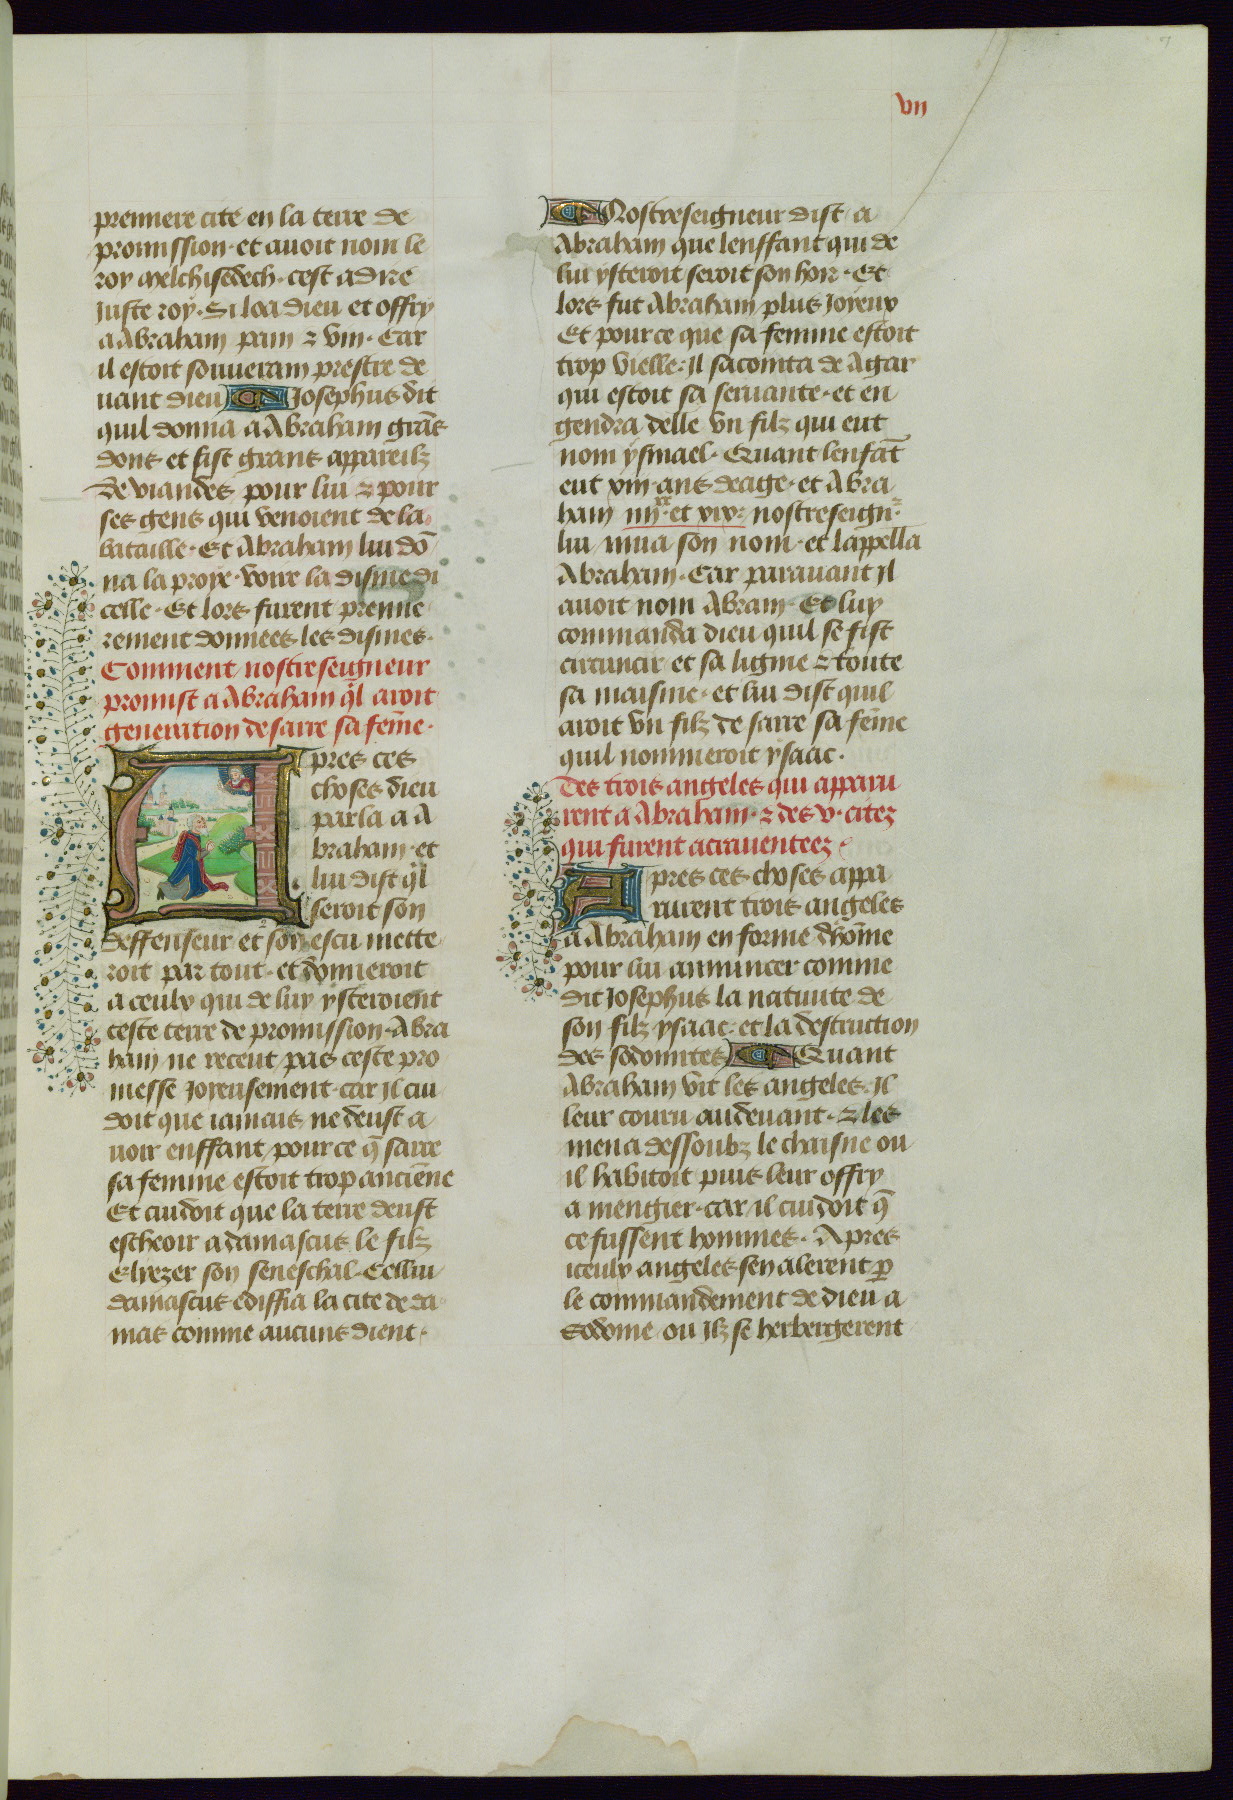 vii
premiere cite en la terre de
promission · et auoit nom le
roy melchisedech · cest a dire
Juste roy · Si loa dieu et offry
a Abraham pain ⁊ vin · Car
il estoit souuerain prestre de
uant dieu C Josephus dit
quil donna a Abraham grās
dons et fist grans appareilz
de viandes pour lui ⁊ pour
ses gens qui venoient de la
bataille · Et Abraham lui dō
na la proye · voire la disme di
celle · Et lors furent premie
rement donnees les dismes ·
Comment nostreseigneur
promist a Abraham q̄l aroit
generation de sarre sa fēme ·
Apres ces
choses dieu
parla a A
braham · et
lui dist q̄l
seroit son
deffenseur et son escu mette
roit par tout · et donneroit
a ceulx qui de luy ysteroient
ceste terre de promission · Abra
ham ne receut pas ceste pro
messe Joyeusement · car il cui
doit que iamais ne deust a
uoir enffant pour ce q̄ sarre
sa femme estoit trop anciēne
Et cuidoit que la terre deust
escheoir a damascus le filz
Elyezer son seneschal · Cellui
damascus ediffia la cite de da
mas comme aucuns dient ·
C Nostreseigneur dist a
Abraham que lenffant qui de
lui ysteroit seroit son hoir · Et
lors fut Abraham plus Joyeux
Et pour ce que sa femme estoit
trop vielle · Il sacointa de Agar
qui estoit sa seruante · et en
gendra delle vn filz qui eut
nom ysmael · Quant lenfāt
eut xiii ans deage · et Abra
ham iiii xx et xix · nostreseignr
lui mua son nom · et lappella
Abraham · Car parauant il
auoit nom Abram · Et luy
commanda dieu quil se fist
circuncir et sa lignie ⁊ toute
sa maisnie · et lui dist quil
aroit vn filz de sarre sa fēme
quil nommeroit ysaac ·
Des trois angeles qui apparu
rent a Abraham · ⁊ des v · citez
qui furent acrauenteez ·
Apres ces choses appa
rurent trois angeles
a Abraham en forme dhōme
pour lui annuncer comme
dit Josephus la natiuite de
son filz ysaac · et la destruction
des sodomites C Quant
Abraham vit les angeles · Il
leur couru au deuant · ⁊ les
mena dessoubz le chaisne ou
il habitoit puis leur offry
a mengier · car il cuidoit q̄
ce fussent hommes · Apres
iceulx angeles sen alerent ꝑ
le commandement de dieu a
Sodome ou Ilz se herbergerent